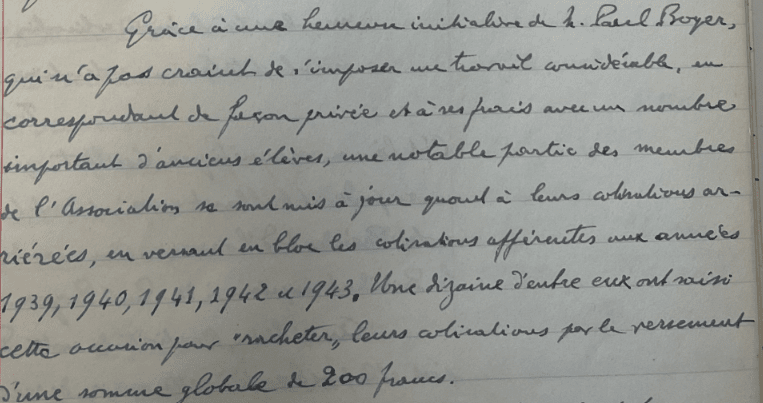 Grâce à une heureuse initiative de M. Paul Boyer,
qui n'a pas craint de s'imposer un travail considérable, en
correspondant de façon privée et à ses frais avec un nombre
important d'anciens élèves, une notable partie des membres
de l'Association se sont mis à jour quant à leurs cotisations ar-
riérées, en versant en bloc les cotisations afférentes aux années
1939, 1940, 1941, 1942 et 1943. Une dizaine d'entre eux ont saisi
cette occasion pour "racheter" leurs cotisations par le versement
d'une somme globale de 200 francs.